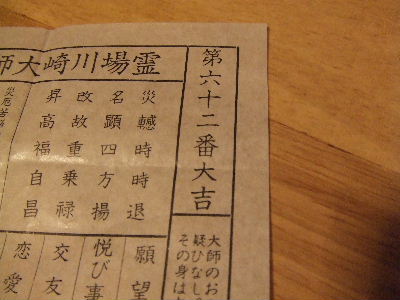 第六十二番大吉
大師のお
疑ひなし
その身は
霊場川崎大師
災轗時時退
名顕四方揚
改故重乗禄
昇高福自昌
願望
悦び事
交友
恋愛